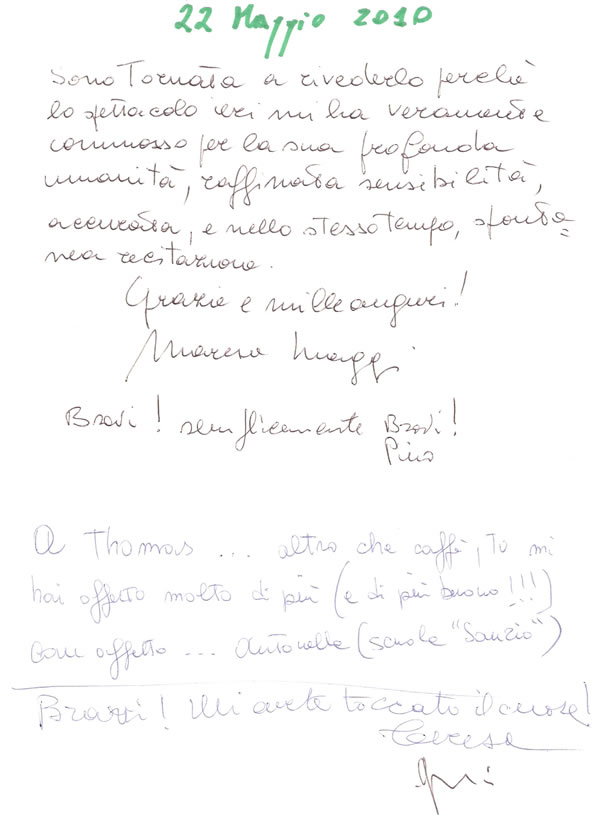 22 Maggio 2010
Sono Tornata a rivederlo perchè
lo spettacolo ieri mi ha veramente
commosso per la sua profonda
umanità, raffinata sensibilità,
accurata, e nello stesso tempo, sponta=
nea recitazione.
Grazie e mille auguri!
Maggi
Bravi! semplicemente Bravi!
Pino
A Thomas ... altro che caffè, Tu mi
hai offerto molto di più (e di più buono!!!)
Con affetto ... Antonella (scuola "Sanzio")
Bravi! Mi avete toccato il cuore!
Teresa